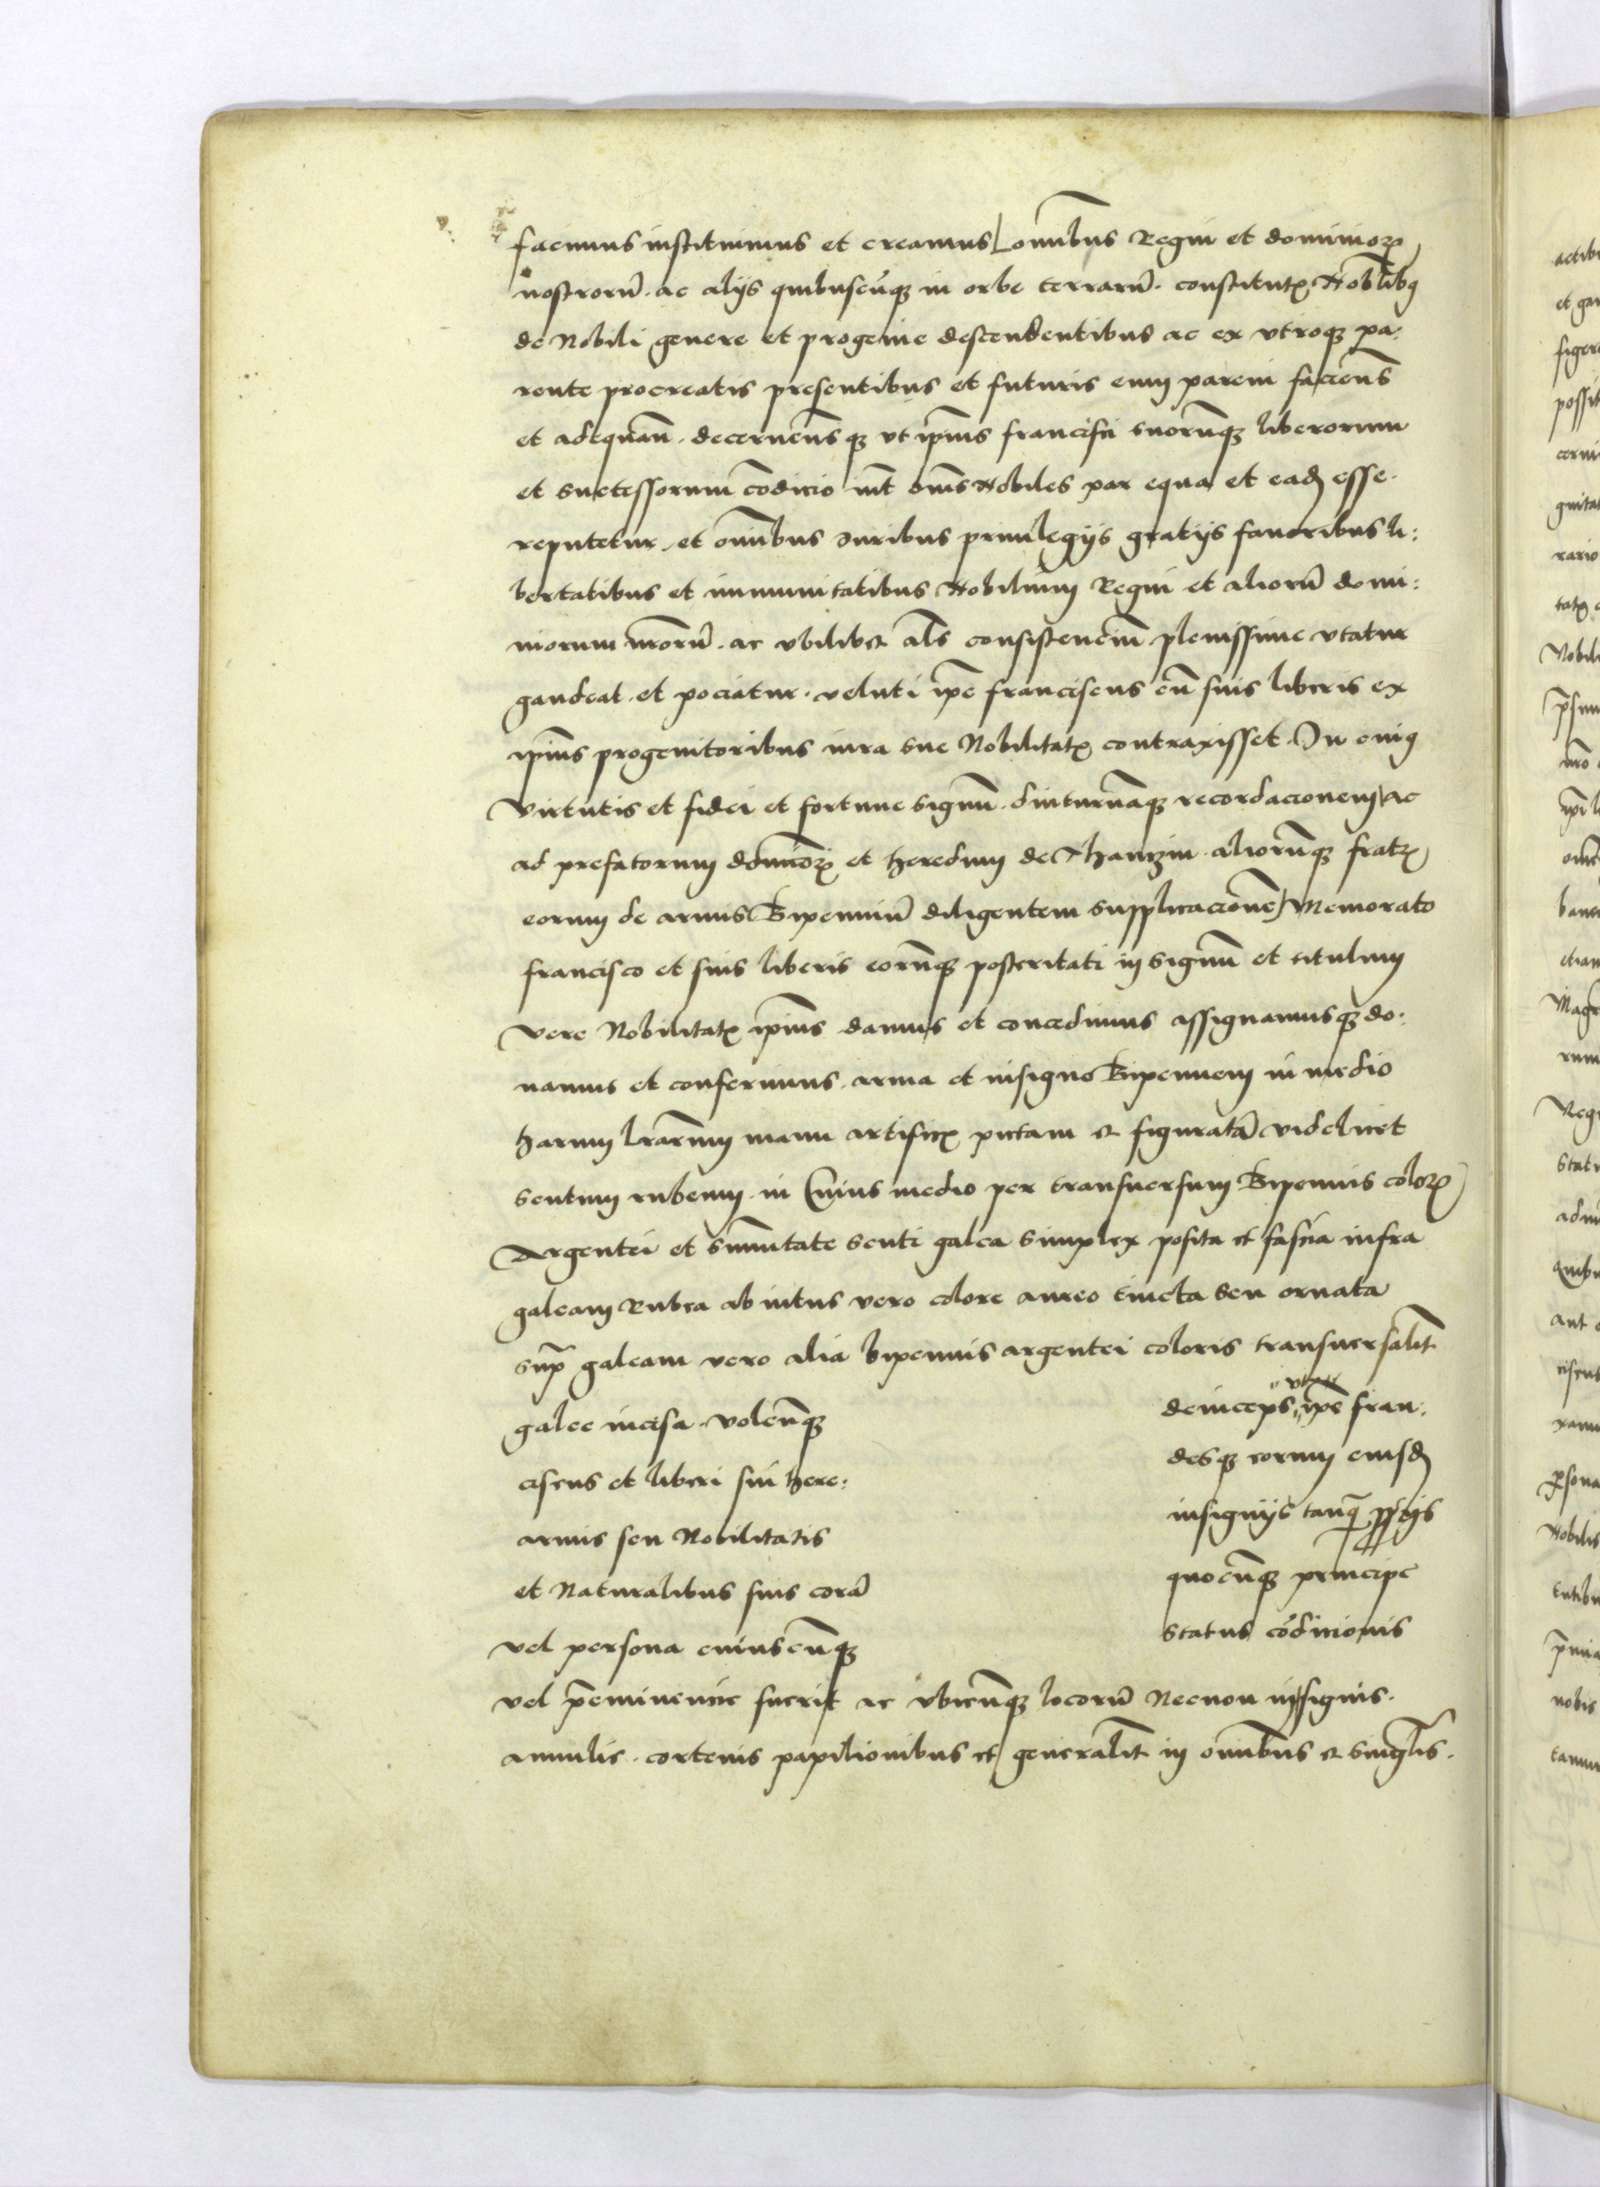 facimus instituimus et creamus omnibus Regni et dominiorꝝ
nostrorū. ac alijs quibuscūqꝫ in orbe terrarū. constitutꝭ Nobilibꝯ
de Nobili genere et progenie descendentibus ac ex vtroqꝫ pa:
rente procreatis presentibus et futuris eum parem faciens
et adequan̄. decernensqꝫ vt ipiūs francisci suorūqꝫ liberorum
et successorum cōdicio int̄ om̄s Nobiles par equa et eadꝫ esse.
reputetur. et om̄ibus Juribus priuilegijs gratijs fauoribus li:
bertatibus et immunitatibus Nobilium Regni et aliorū domi:
niorum nrōrū. ac vbilibꝫ al̄s consistenciū plenissime vtatur
gaudeat. et pociatur. veluti ip̄e franciscus cū suis liberis ex
ipiūs progenitoribus iura sue Nobilitatꝭ contraxisset. In cuiꝯ
virtutis et fidei et fortune signū. diuturnāqꝫ recordacionem ac
ad prefatorum dominorꝝ et heredum de Thanczin. aliorūqꝫ fratrꝝ
eorum de armis Bipenniū diligentem supplicacionē Memorato
francisco et suis liberis eorūqꝫ posteritati in signū et titulum
vere Nobilitatꝭ ipiūs damus et concedimus assignamusqꝫ do:
namus et conferimus. arma et insigne Bipennem in medio
harum lrārum manu artificꝭ pictam et figuratā videlicet
scutum rubeum. in Cuius medio per transuersum Bipennis colorꝭ
Argentei et sūmitate scuti galea simplex posita et fascia infra
galeam Rubea ab intus vero colore aureo tincta seu ornata
supͣ galeam vero alia bipennis argentei coloris transuersalit̄
galee incisa. volentēqꝫ deinceps vt ip̄e fran:
ciscus et liberi sui here: desqꝫ eorum eiusdꝫ
armis seu Nobilitatis insignijs tanqͣ pprijs
et Naturalibus suis corā quocūqꝫ principe
vel persona cuiuscūqꝫ status cōdicionis
vel p̄eminencie fuerit ac vbicūqꝫ locorū Necnon in signis.
annulis. cortenis papilionibus et generalit̄ in om̄ibus et singlis.